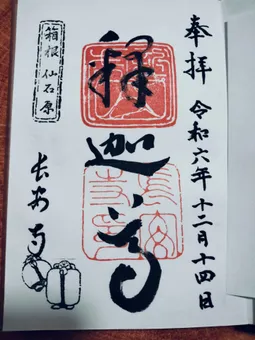 奉拝 令和六年十二月十四日
釋迦尊
箱根 仙石原
長安寺